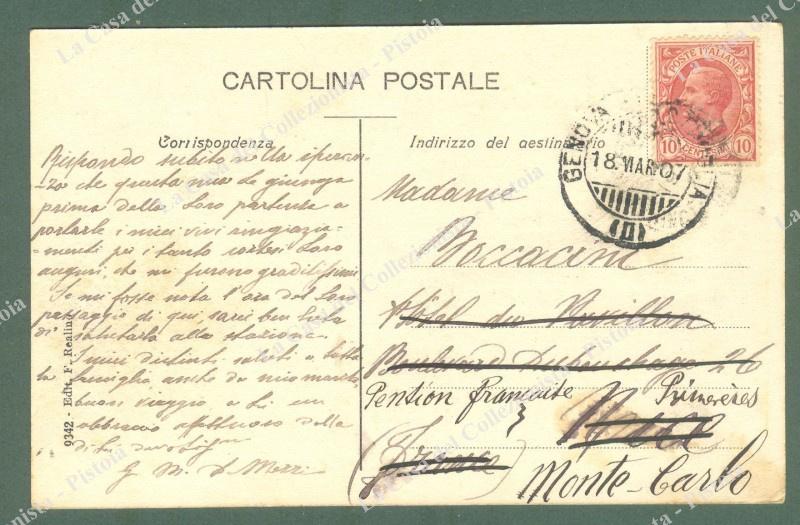 CARTOLINA POSTALE
POSTE ITALIANE
10 CENTESIMI 10
GENOVA
18.MAR.07
(II)
Corrispondenza
Rispondo subito nella speran-
za che questa mia Le giunga
prima della Loro partenza a
portarle i miei vivi ringrazia-
menti per i tanto cortesi Loro
auguri, che mi furono graditissimi
Se mi fosse nota l'ora del Loro
passaggio di qui, sarei ben lieta
di salutarla alla stazione.
I miei distinti saluti a tutta
la famiglia, anche da mio marito,
buon viaggio e a Lei un
abbraccio affettuoso della
di Lei
G. M.
9342 - Edit. F. Realini
Indirizzo del destinatario
Madame
Boccacini
Hôtel du Pavillon
Boulevard Dubouchage 26
Pention française Primevères
Nice
(France)
Monte-Carlo
La Casa del Collezionista - Pistoia